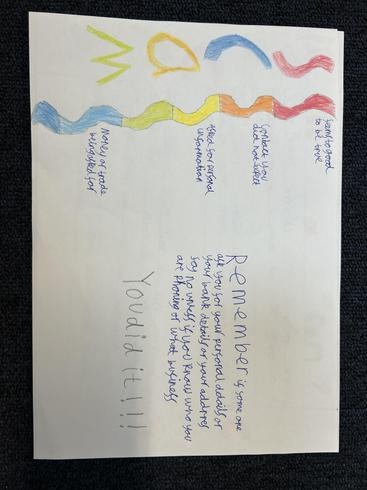 S
Seem to good
to be true
C
Contact you
did not expect
a
Asked for personal
information
M
Money or trade
being asked for
Remember is some one
ask you for your personal details or
your bank details or your addres
say no unless if you know who you
are phoning or what business
You did it!!!